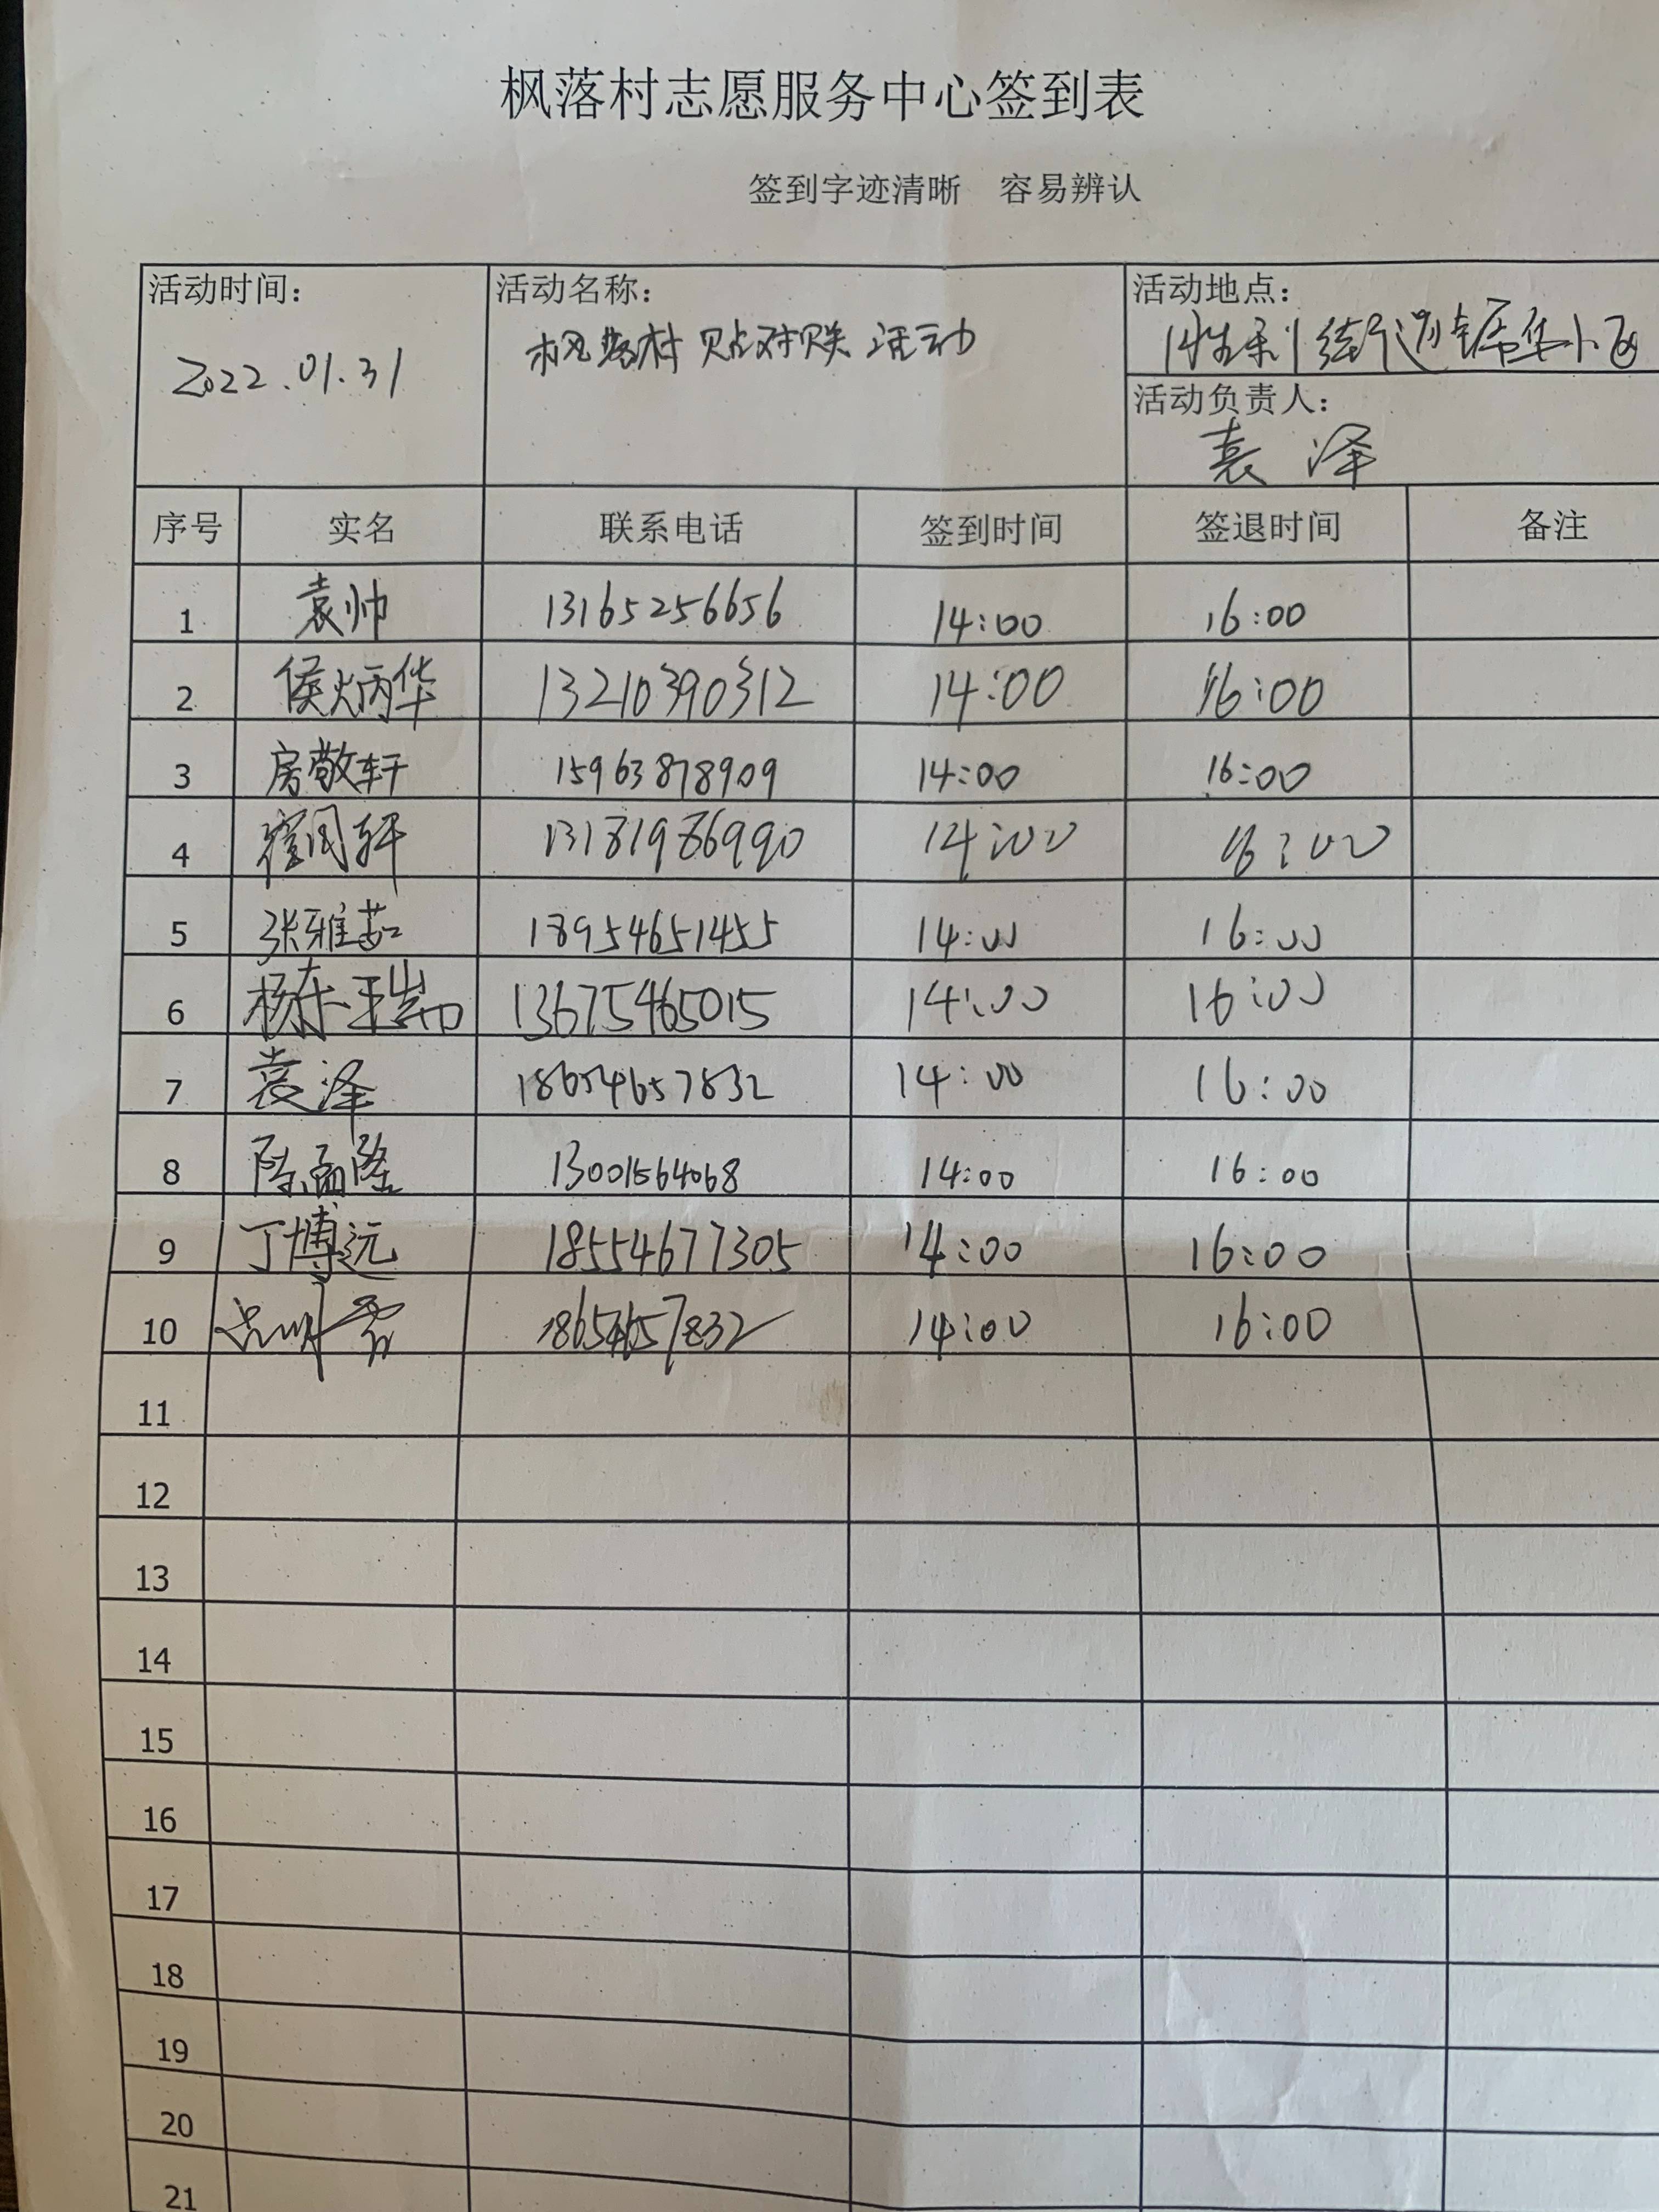 枫落村志愿服务中心签到表
签到字迹清晰 容易辨认
活动时间: 活动名称: 活动地点:
2022.01.31 枫落村 贴对联 活动 胜利街道锦华小区
活动负责人:
袁泽
序号 实名 联系电话 签到时间 签退时间 备注
1 袁帅 13165256656 14:00 16:00
2 侯炳华 13210390312 14:00 16:00
3 房敬轩 15963878909 14:00 16:00
4 轩 13181986990 14:00 16:00
5 张雅茹 18954651455 14:00 16:00
6 13675465015 14:00 16:00
7 袁泽 18654657832 14:00 16:00
8 陈孟隆 13001564068 14:00 16:00
9 丁博远 18554677305 14:00 16:00
10 18654657832 14:00 16:00
11
12
13
14
15
16
17
18
19
20
21